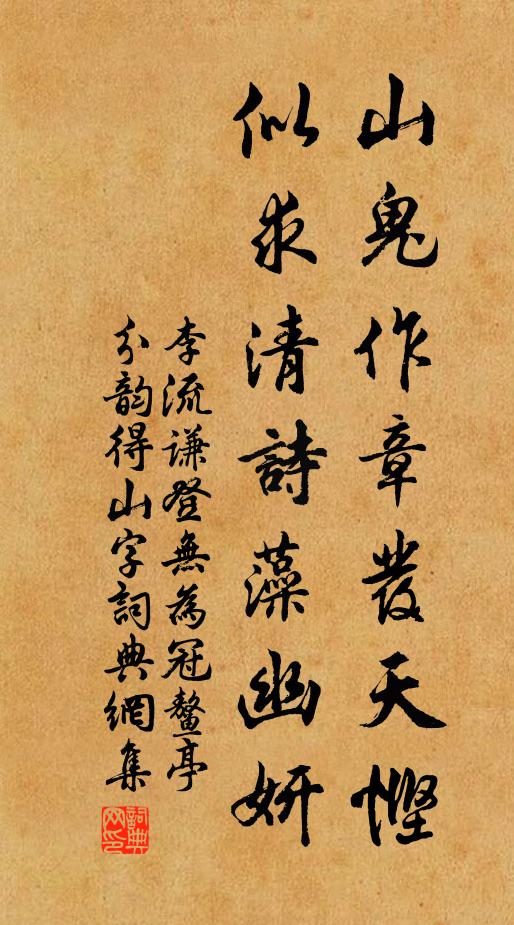 山鬼作章發天慳
似求清詩藻幽妍
李流謙登無為冠鰲亭
分韵得山字詞典網集
詞典网印